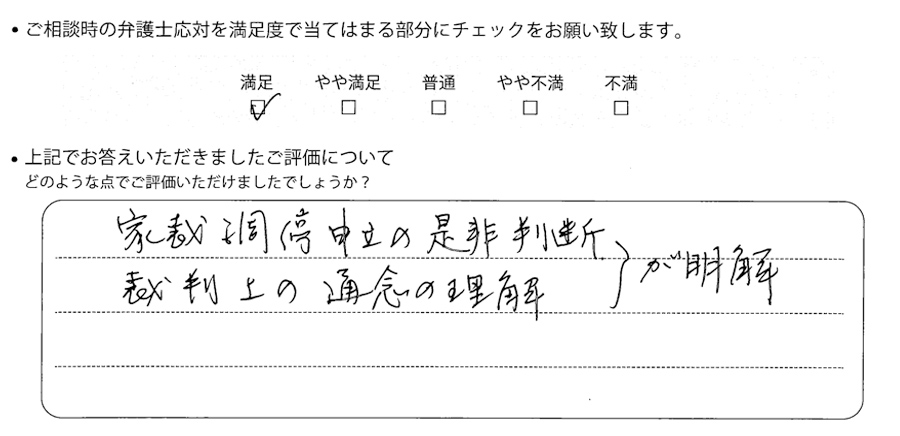 • ご相談時の弁護士応対を満足度で当てはまる部分にチェックをお願い致します。
満足 やや満足 普通 やや不満 不満
• 上記でお答えいただきましたご評価について
どのような点でご評価いただけましたでしょうか？
家裁調停申立の是非判断
裁判上の通念の理解
が明解